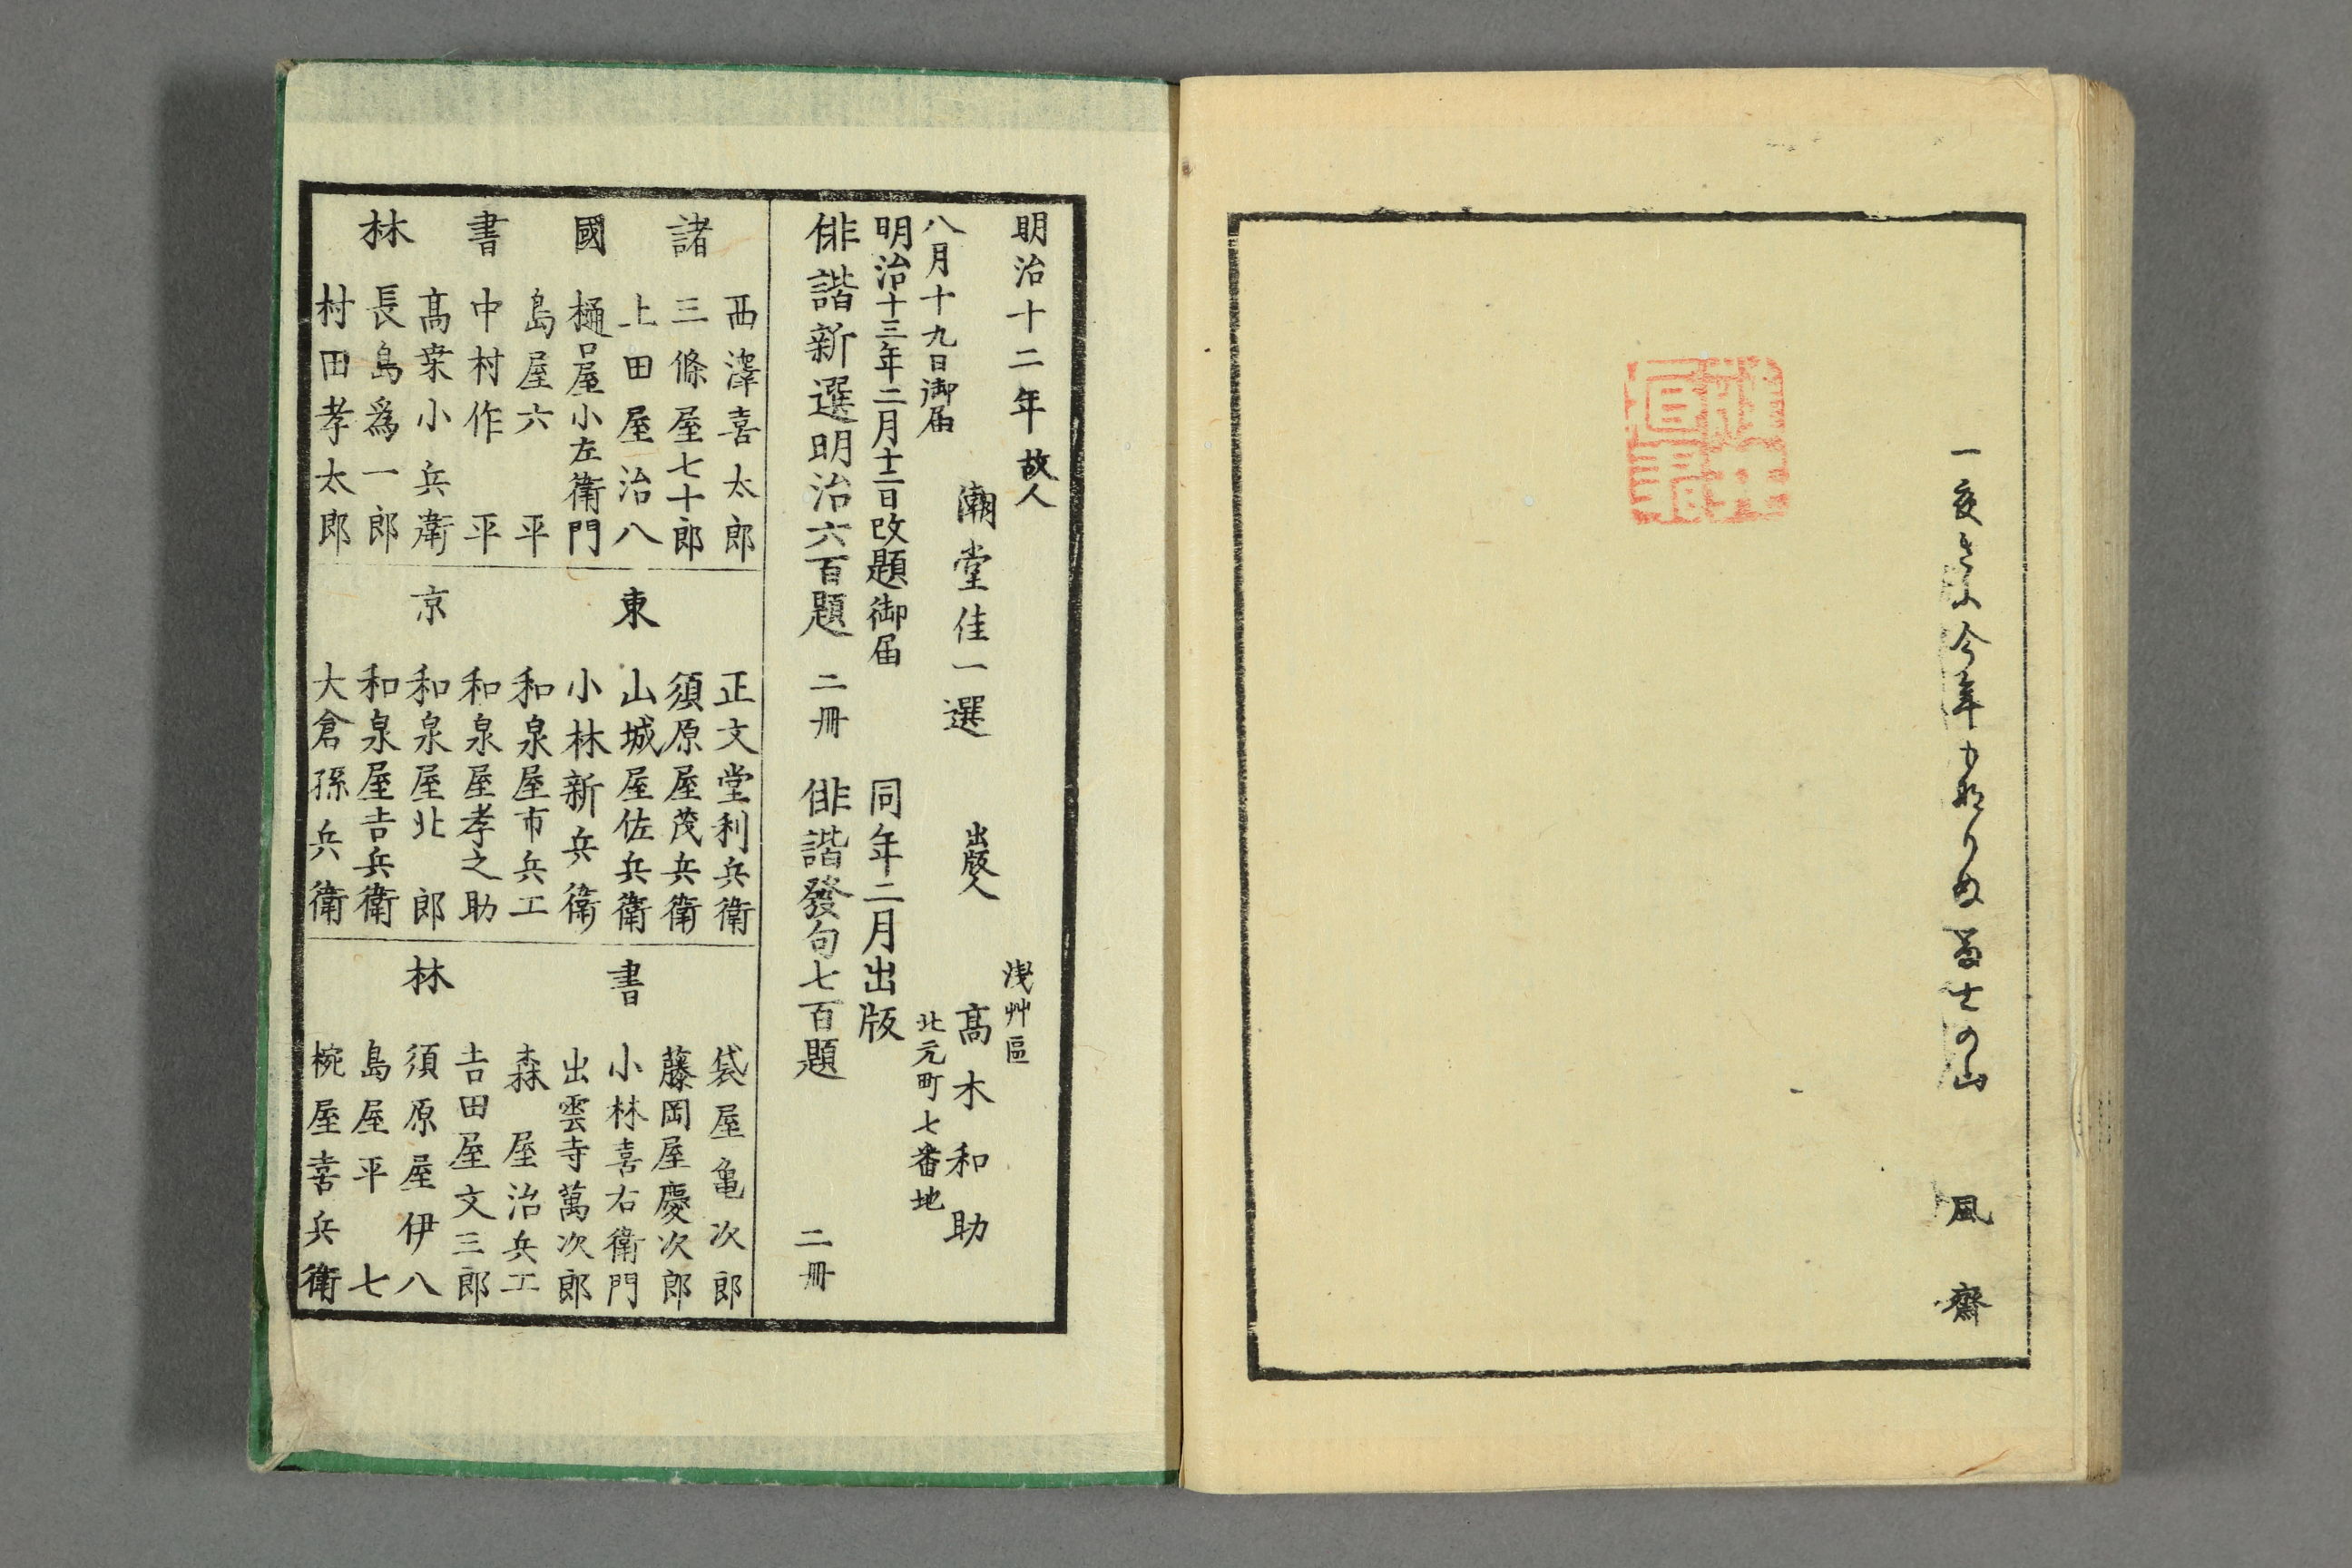 一夜きに今年になりぬ富士の山
風齋
明治十二年
八月十九日御届
明治十三年二月十二日改題御届
同年二月出版
故人
潮堂佳一選
出版人
淺艸區
北元町七番地
髙木和助
俳諧新選明治六百題 二冊
俳諧發句七百題 二冊
諸國書林
西澤喜太郎
三條屋七十郎
上田屋治八
樋口屋小左衛門
島屋六平
中村作平
髙桒小兵衛
長島爲一郎
村田孝太郎
東京
正文堂利兵衛
須原屋茂兵衛
山城屋佐兵衛
小林新兵衛
和泉屋市兵エ
和泉屋孝之助
和泉屋北郎
和泉屋吉兵衛
大倉孫兵衛
書林
袋屋亀次郎
藤岡屋慶次郎
小林喜右衛門
出雲寺萬次郎
森屋治兵エ
吉田屋文三郎
須原屋伊八
島屋平七
椀屋喜兵衛